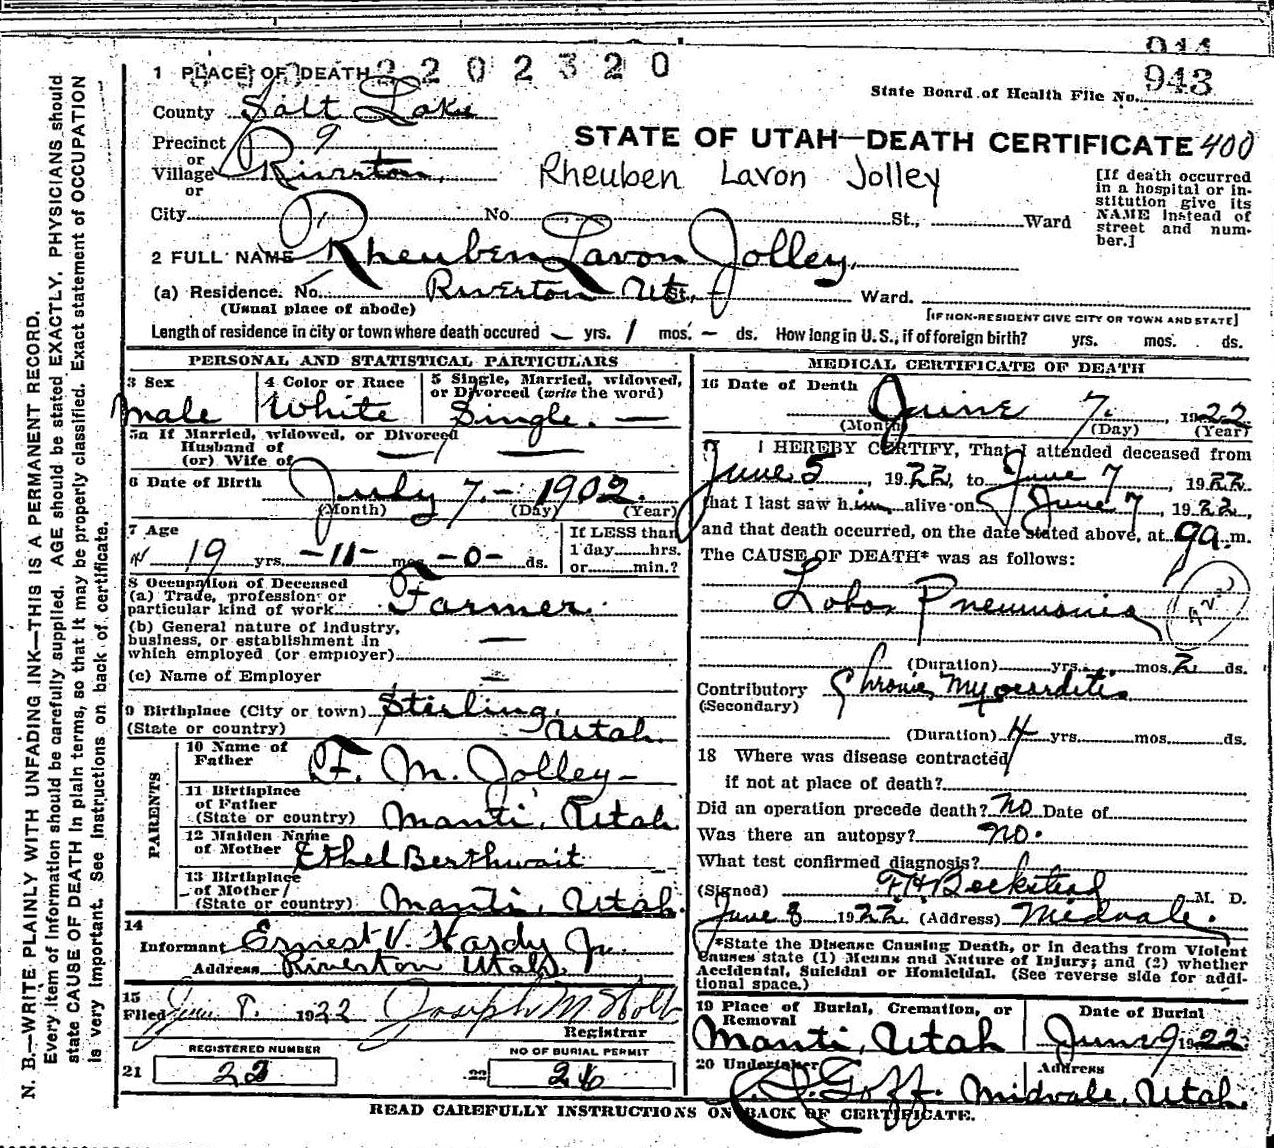 943
State Board of Health File No.
1 PLACE OF DEATH 2202320
County Salt Lake
Precinct 9
or
Village Riverton,
or
City No. St., Ward
STATE OF UTAH—DEATH CERTIFICATE 400
Rheuben Lavon Jolley
[If death occurred in a hospital or in-
stitution give its
NAME instead of
street and num-
ber.]
2 FULL NAME Rheuben Lavon Jolley.
(a) Residence. No. Riverton Ut. St., Ward.
(Usual place of abode)
[IF NON-RESIDENT GIVE CITY OR TOWN AND STATE]
Length of residence in city or town where death occured – yrs. 1 mos. – ds. How long in U.S., if of foreign birth? yrs. mos. ds.
PERSONAL AND STATISTICAL PARTICULARS
3 Sex
male
4 Color or Race
White
5 Single, Married, widowed,
or Divorced (write the word)
Single. —
5a If Married, widowed, or Divorced
Husband of
(or) Wife of
6 Date of Birth July 7 – 1902.
(Month) (Day) (Year)
7 Age
19 yrs. – 11 – mos. – 0 – ds.
If LESS than
1 day hrs.
or min.?
8 Occupation of Deceased
(a) Trade, profession or
particular kind of work Farmer.
(b) General nature of industry,
business, or establishment in
which employed (or employer) —
(c) Name of Employer
9 Birthplace (City or town) Sterling,
(State or country) Utah.
PARENTS
10 Name of
Father F. M. Jolley –
11 Birthplace
of Father
(State or country) Manti, Utah.
12 Maiden Name
of Mother Ethel Berthwait
13 Birthplace
of Mother
(State or country) Manti, Utah.
14
Informant Ernest V. Hardy Jr.
Address Riverton Utah.
15
Filed June 8. 1922 Joseph M Holt
Registrar
REGISTERED NUMBER
21 22
NO OF BURIAL PERMIT
22 26
MEDICAL CERTIFICATE OF DEATH
16 Date of Death June 7. 1922
(Month) (Day) (Year)
I HEREBY CERTIFY, That I attended deceased from
June 5, 1922, to June 7, 1922
that I last saw him alive on June 7, 1922,
and that death occurred, on the date stated above, at 9 a. m.
The CAUSE OF DEATH* was as follows:
Lobar Pneumonia
(Duration) yrs. mos. 2 ds.
Contributory Chronic Myocarditis
(Secondary)
(Duration) 4 yrs. mos. ds.
18 Where was disease contracted
if not at place of death?
Did an operation precede death? no Date of
Was there an autopsy? no.
What test confirmed diagnosis?
(Signed) F H Beckstead M. D.
June 8 1922 (Address) Midvale.
*State the Disease Causing Death, or in deaths from Violent
Causes state (1) Means and Nature of Injury; and (2) whether
Accidental, Suicidal or Homicidal. (See reverse side for addi-
tional space.)
19 Place of Burial, Cremation, or
Removal
Manti, Utah
Date of Burial
June 9 1922
20 Undertaker Address
Goff. Midvale, Utah.
READ CAREFULLY INSTRUCTIONS ON BACK OF CERTIFICATE.
N. B.—WRITE PLAINLY WITH UNFADING INK—THIS IS A PERMANENT RECORD.
Every item of Information should be carefully supplied. AGE should be stated EXACTLY. PHYSICIANS should
state CAUSE OF DEATH in plain terms, so that it may be properly classified. Exact statement of OCCUPATION
is very important. See instructions on back of certificate.